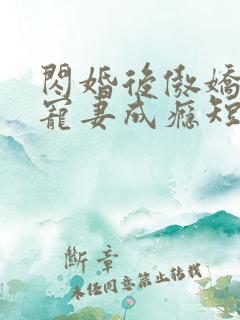 閃婚後傲嬌
寵妻成癮短
斷章
未经同意禁止转载